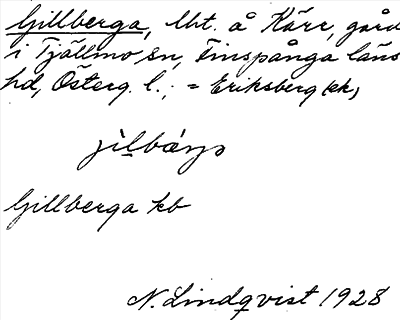 Gillberga, lht. å Kärr, gård
i Tjällmo sn, Finspånga läns
hd, Österg. l.; = Eriksberg (ek)
Gillberga kb
N. Lindqvist 1928